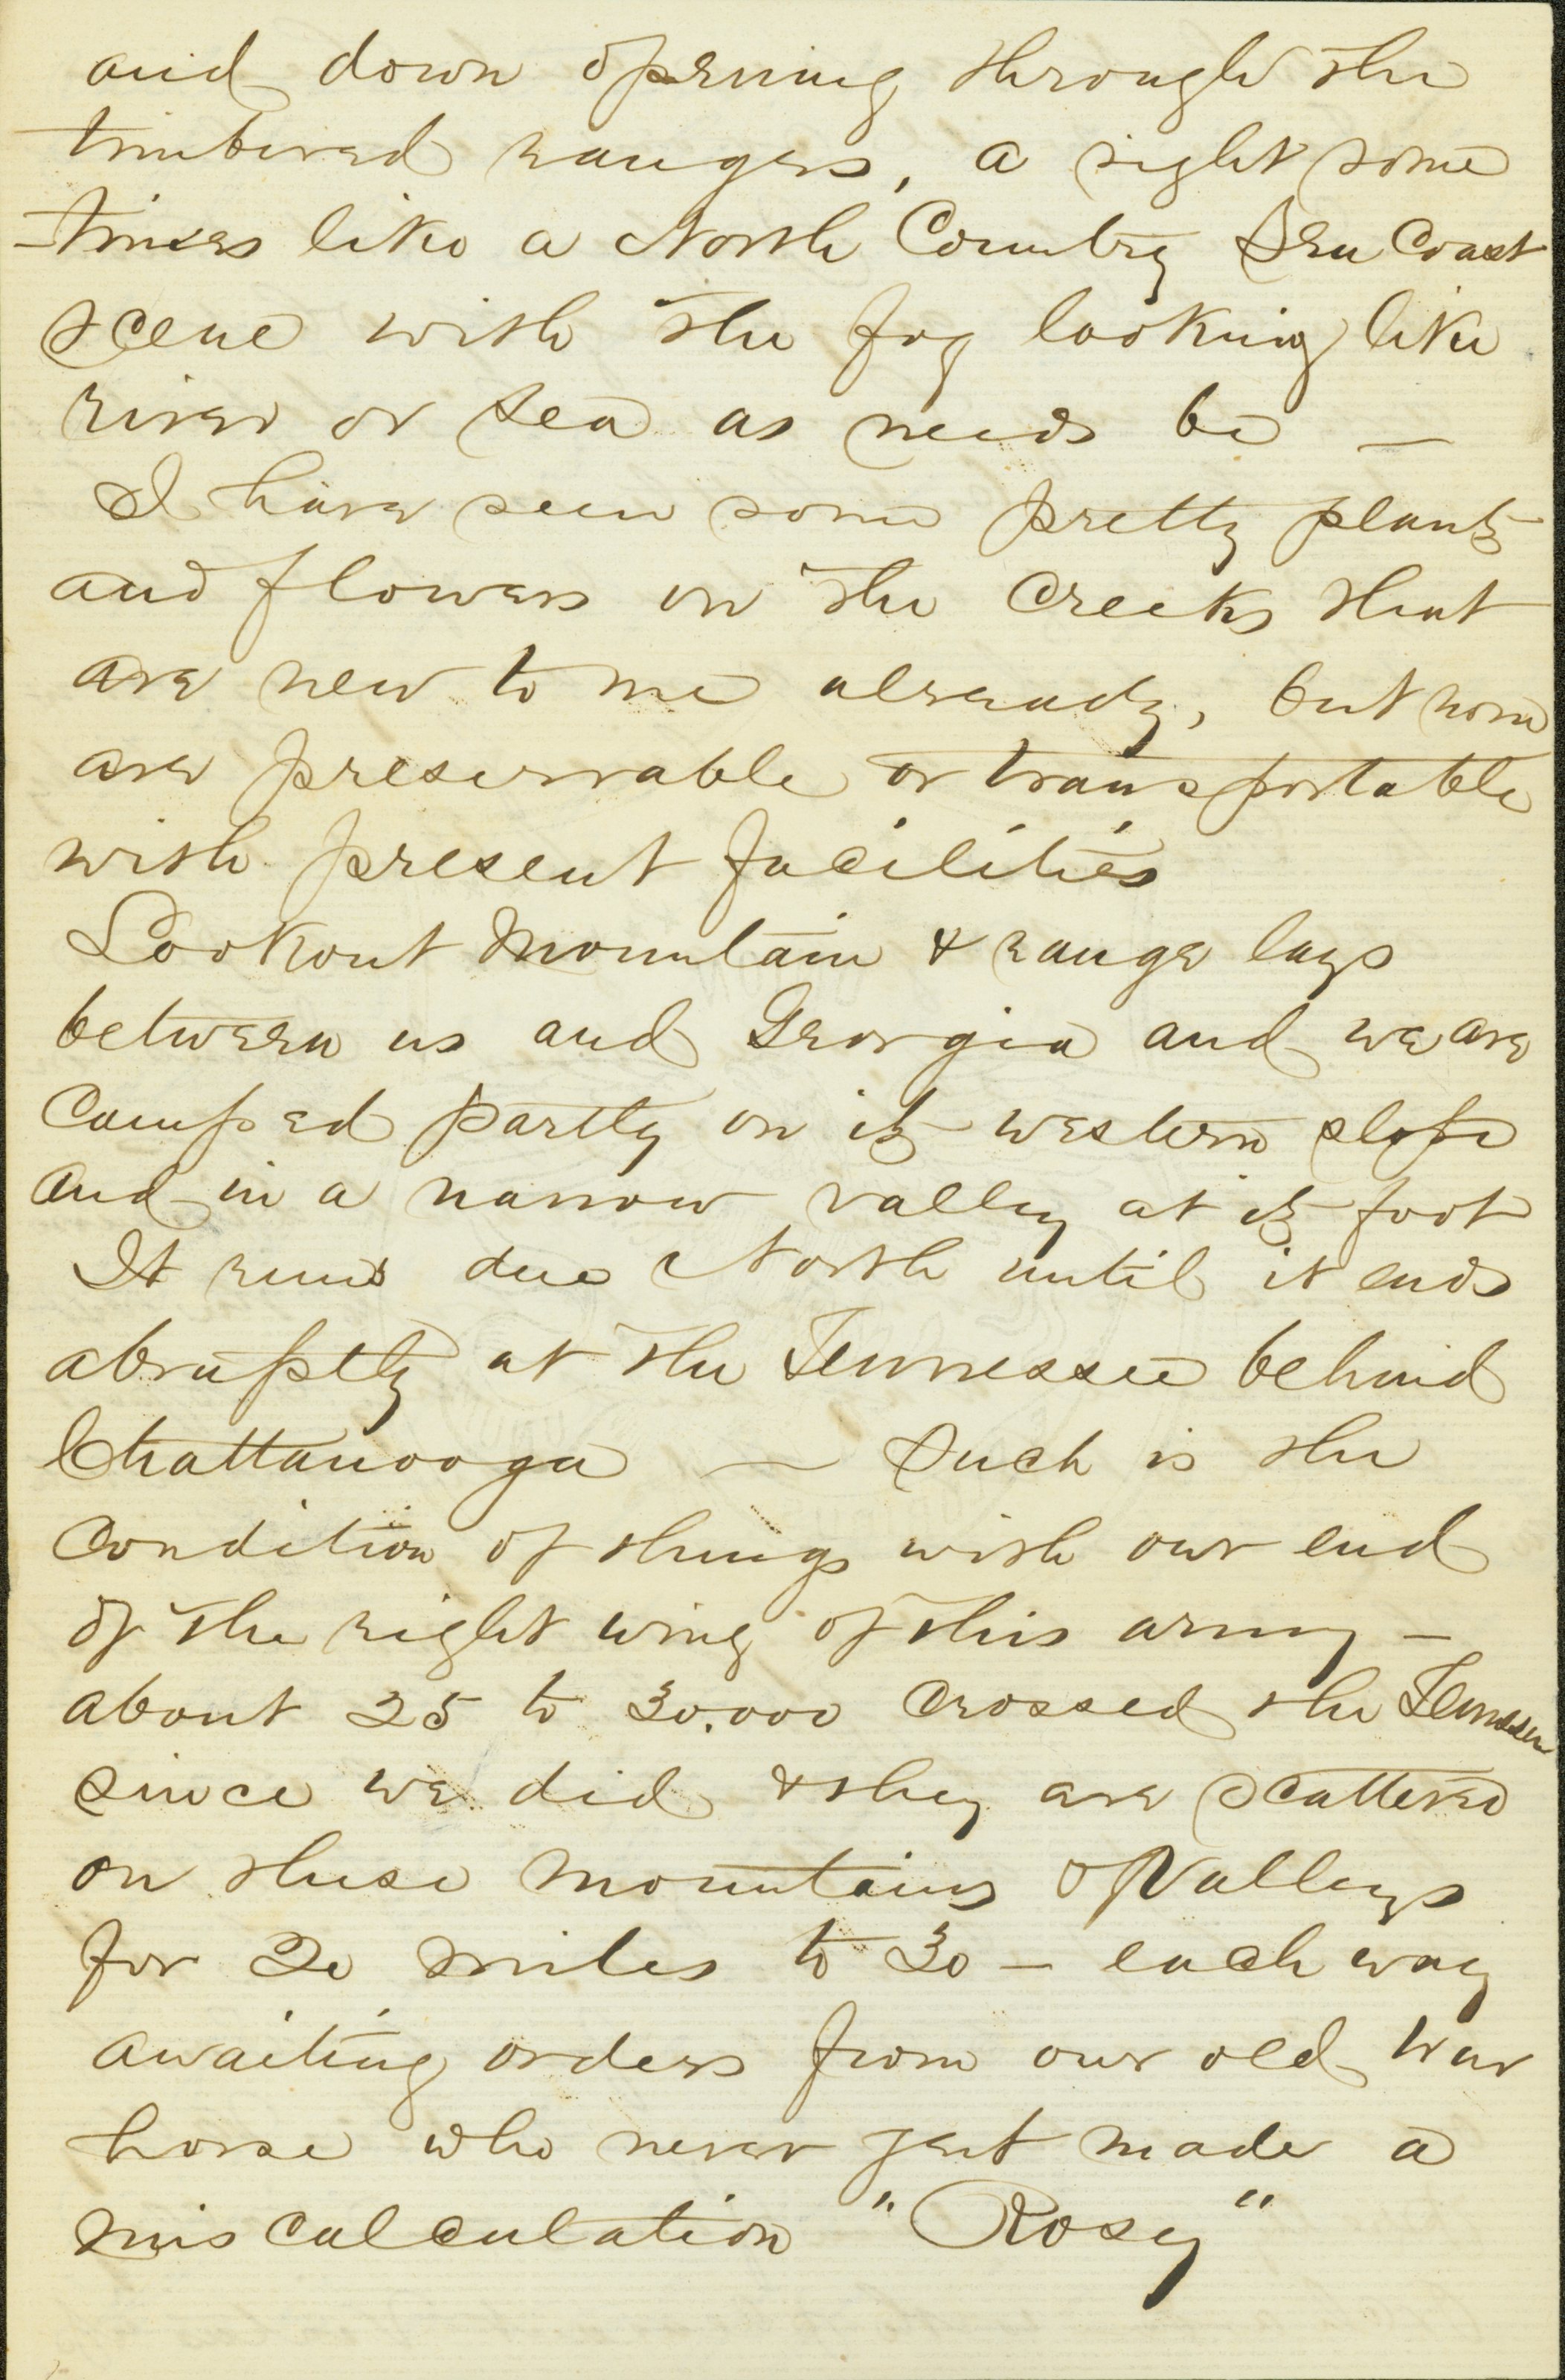 and down opening through the
timbered ranges, a sight some
-times like a North Country Sea Coast
scene with the fog looking like
river or sea as needs be —
I have seen some pretty plants
and flowers on the creeks that
are new to me already, but none
are preservable or transportable
with present facilities
Lookout Mountain & range lays
between us and Georgia and we are
camped partly on its western slope
and in a narrow valley at its foot
It runs due North until it ends
abruptly at the Tennessee behind
Chattanooga — Such is the
condition of things with our end
of the right wing of this army —
about 25 to 30.000 crossed the Tennessee
since we did & they are scattered
on these mountains & Valleys
for 20 miles to 30 — each way
awaiting orders from our old war
horse who never yet made a
miscalculation "Rosey"